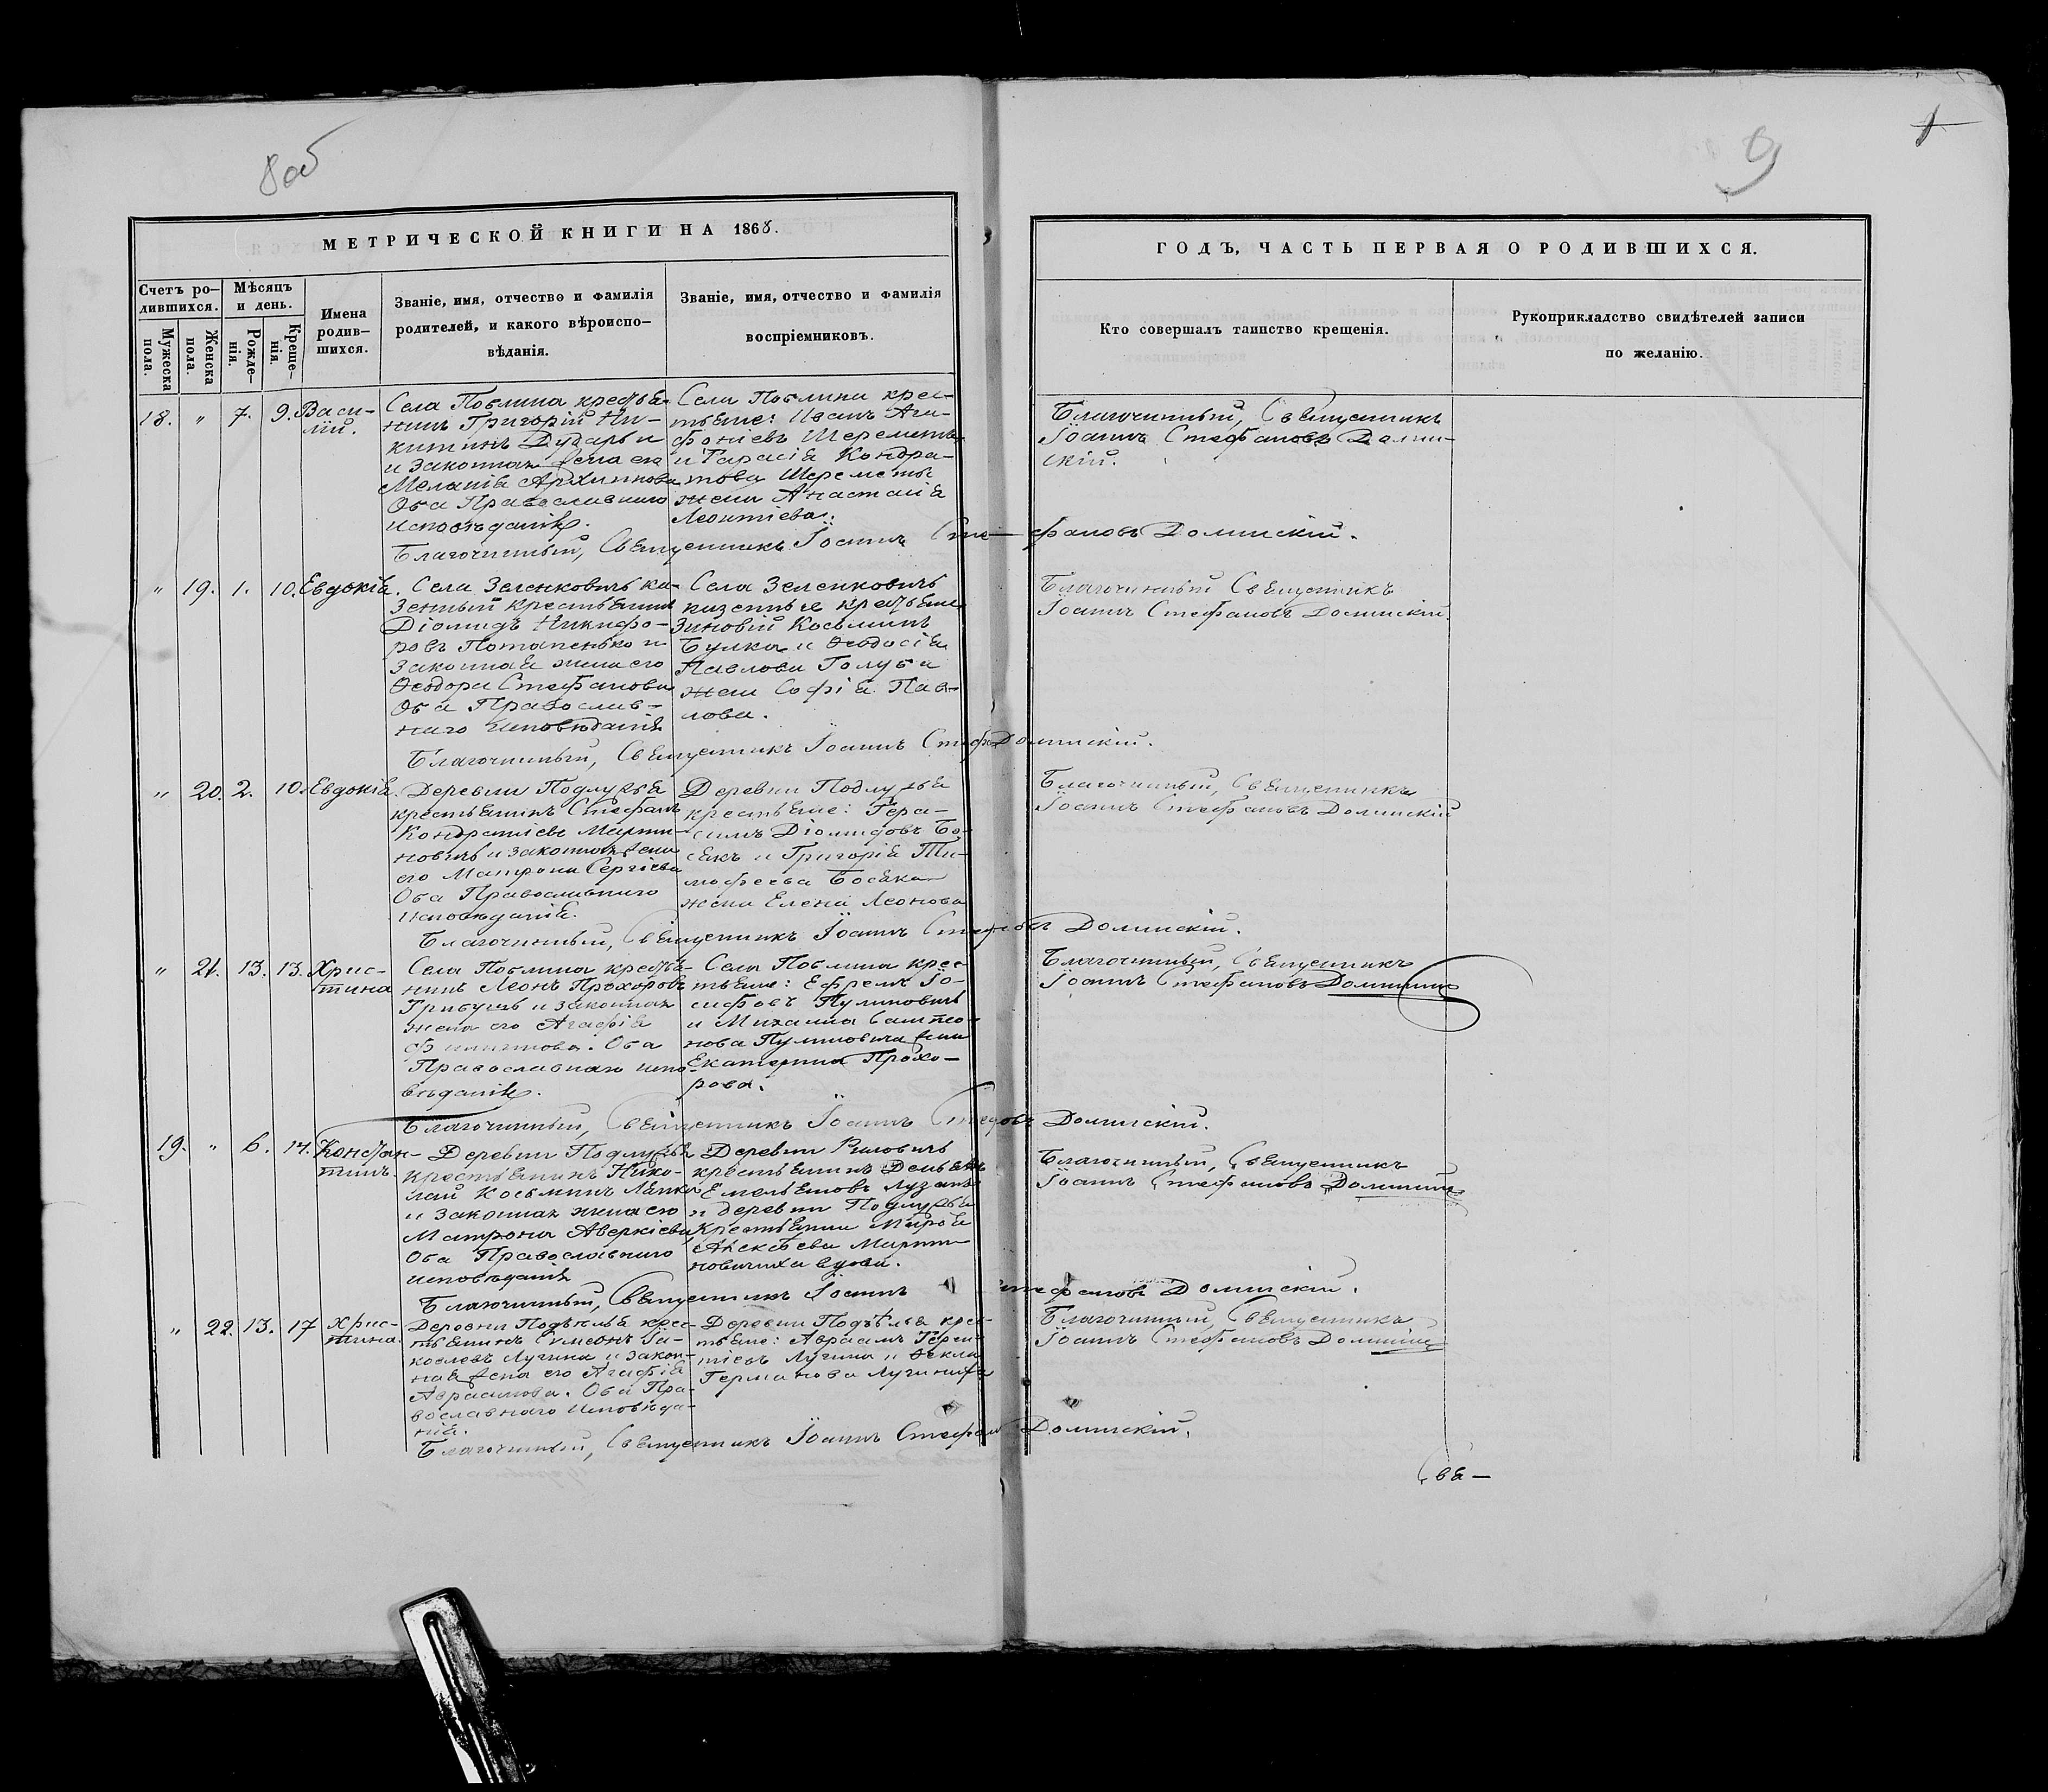 8 об
9
1
МЕТРИЧЕСКОЙ КНИГИ НА 1868.
Счетъ ро–
дившихся.
Мужеска
пола.
Женска
пола.
Мѣсяцъ
и день.
Рожде–
нія.
Креще–
нія.
Имена
родив–
шихся.
Званіе, имя, отчество и фамилія
родителей, и какого вѣроиспо–
вѣданія.
Званіе, имя, отчество и фамилія
воспріемниковъ.
ГОДЪ, ЧАСТЬ ПЕРВАЯ О РОДИВШИХСЯ.
Кто совершалъ таинство крещенія.
Рукоприкладство свидѣтелей записи
по желанію.
18. " 7. 9. Васи–
лій.
Села крестья–
нинъ Григорій Ни–
китинъ
и законная жена его
Меланія Архипова
Оба Православнаго
исповѣданія.
Села крес–
тьяне: Иванъ Ага–
фоніевъ Шереметъ
и Тарасія Кондра–
това Шереметы
жена Анастасія
Леонтіева.
Благочинный, Священникъ
Іоаннъ Стефановъ Долин–
скій.
Благочинный, Священникъ Іоаннъ Стефановъ Долинскій.
" 19. 1. 10. Евдокія.
Села Зеленковичъ ка–
зенный крестьянинъ
Діомидъ Никифо–
ровъ Потапенько и
законная жена его
Ѳеодора Стефанова
Оба Православ–
наго исповѣданія
Села Зеленковичъ
казенные крестьяне
Зиновій Косьминъ
Булка и Ѳеодосія
Павлова Голуба
жена Софія Пав–
лова.
Благочинный Священникъ
Іоаннъ Стефановъ Долинскій.
Благочинный, Священникъ Іоаннъ Стеф. Долинскій.
" 20. 2. 10. Евдокія.
Деревни Подлужья
крестьянинъ Стефанъ
Кондратіевъ Марти–
новичъ и законная жена
его Матрона Сергіева
Оба Православнаго
исповѣданія.
Деревни Подлужья
крестьяне: Гера–
симъ Діомидовъ Бо–
сякъ и Григорія Ти–
мофеева Босяка
жена Елена Леонова
Благочинный, Священникъ
Іоаннъ Стефановъ Долинскій
Благочинный, Священникъ Іоаннъ Долинскій.
" 21. 13. 13. Хрис–
тина
Села крестья–
нинъ Леонъ Прохоровъ
и законная
жена его Агафія
Филипова. Оба
Православнаго испо–
вѣданія.
Села крес–
тьяне: Ефремъ Іо–
сифовъ Пулиновичъ
и Михаила Сампсо–
нова Пулиновича жена
Екатерина Прохо–
рова.
Благочинный, Священникъ
Іоаннъ Стефановъ Долинскій
Благочинный, Священникъ Іоаннъ Долинскій.
19. " 6. 14. Констан–
тинъ.
Деревни Подлужья
крестьянинъ Нико–
лай Косьминъ Ляпка
и законная жена его
Матрона Аверкіева
Оба Православнаго
исповѣданія
Деревни
крестьянинъ Демьянъ
Емельяновъ
и деревни Подлужья
крестьянка
Алексѣева Марти–
новичиха вдова.
Благочинный, Священникъ
Іоаннъ Стефановъ Долинскій
Благочинный, Священникъ Іоаннъ Стефановъ Долинскій.
" 22. 13. 17 Хрис–
тина.
Деревни Подѣлья крес–
тьянинъ Симеонъ Іа–
ковлевъ Лугина и закон–
ная жена его Агафія
Авраамова. Оба Пра–
вославнаго исповѣда–
нія.
Деревни Подѣлья крес–
тьяне: Авраамъ Терен–
тіевъ Лугина и Ѳекла
Германова
Благочинный, Священникъ
Іоаннъ Стефановъ Долинскій
Благочинный, Священникъ Іоаннъ Стефан. Долинскій.
Свя–